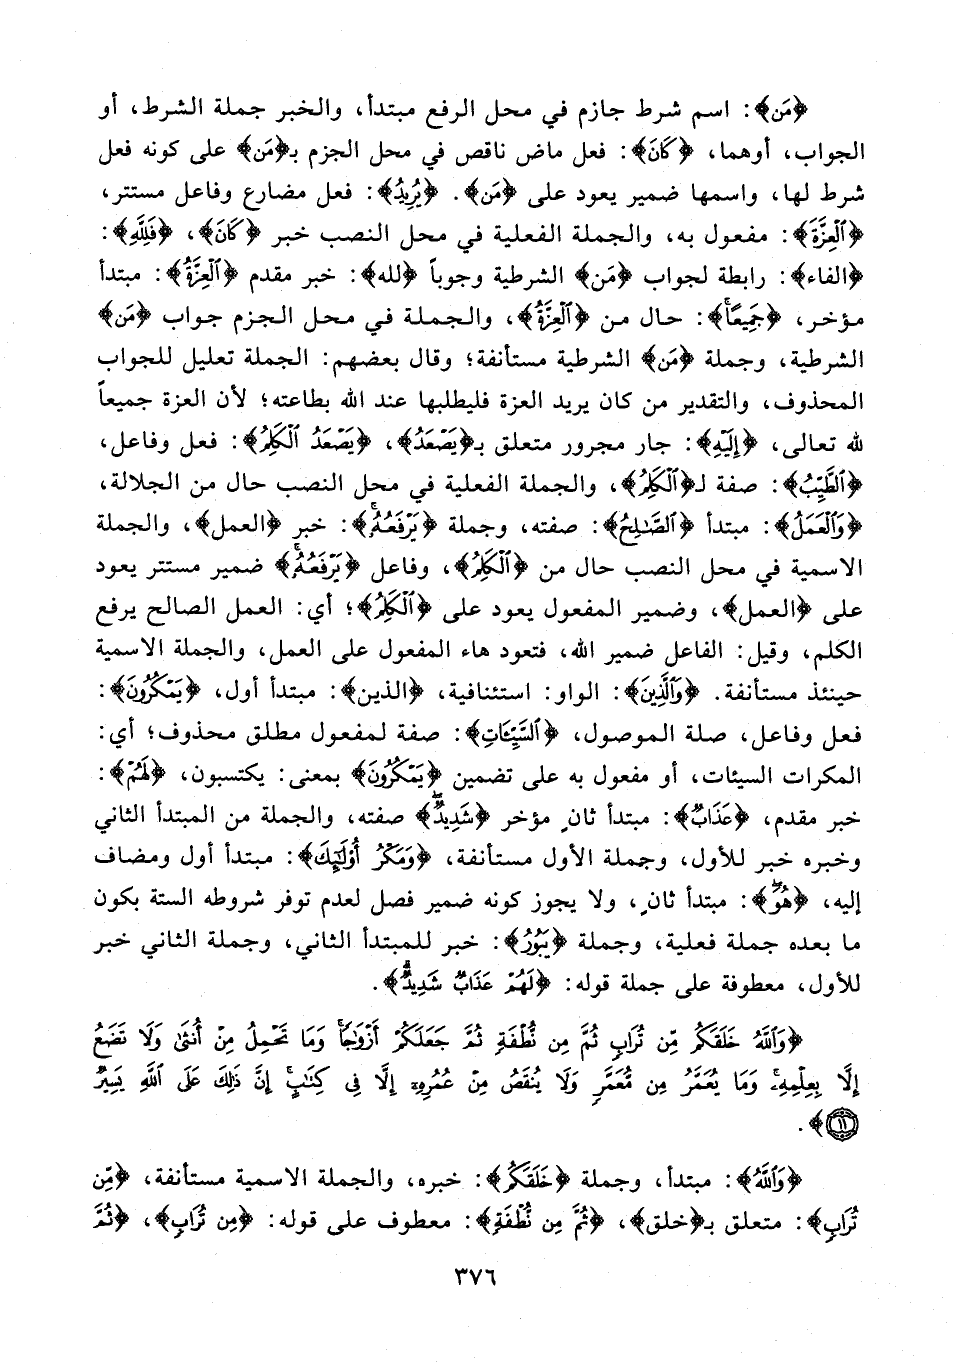 ﴿مَن﴾: اسم شرط جازم في محل الرفع مبتدأ، والخبر جملة الشرط، أو
الجواب، أوهما، ﴿كَانَ﴾: فعل ماض ناقص في محل الجزم بـ﴿مَن﴾ على كونه فعل
شرط لها، واسمها ضمير يعود على ﴿مَن﴾. ﴿يُرِيدُ﴾: فعل مضارع وفاعل مستتر،
﴿ٱلْعِزَّةَ﴾: مفعول به، والجملة الفعلية في محل النصب خبر ﴿كَانَ﴾، ﴿فَلِلَّهِ﴾:
﴿الفاء﴾: رابطة لجواب ﴿مَن﴾ الشرطية وجوباً ﴿لله﴾: خبر مقدم ﴿ٱلْعِزَّةُ﴾: مبتدأ
مؤخر، ﴿جَمِيعًا﴾: حال من ﴿ٱلْعِزَّةُ﴾، والجملة في محل الجزم جواب ﴿مَن﴾
الشرطية، وجملة ﴿مَن﴾ الشرطية مستأنفة؛ وقال بعضهم: الجملة تعليل للجواب
المحذوف، والتقدير من كان يريد العزة فليطلبها عند الله بطاعته؛ لأن العزة جميعاً
لله تعالى، ﴿إِلَيْهِ﴾: جار مجرور متعلق بـ﴿يَصْعَدُ﴾، ﴿يَصْعَدُ ٱلْكَلِمُ﴾: فعل وفاعل،
﴿ٱلطَّيِّبُ﴾: صفة لـ﴿ٱلْكَلِمُ﴾، والجملة الفعلية في محل النصب حال من الجلالة،
﴿وَٱلْعَمَلُ﴾: مبتدأ ﴿ٱلصَّٰلِحُ﴾: صفته، وجملة ﴿يَرْفَعُهُۥ﴾: خبر ﴿العمل﴾، والجملة
الاسمية في محل النصب حال من ﴿ٱلْكَلِمُ﴾، وفاعل ﴿يَرْفَعُهُۥ﴾ ضمير مستتر يعود
على ﴿العمل﴾، وضمير المفعول يعود على ﴿ٱلْكَلِمُ﴾؛ أي: العمل الصالح يرفع
الكلم، وقيل: الفاعل ضمير الله، فتعود هاء المفعول على العمل، والجملة الاسمية
حينئذ مستأنفة. ﴿وَٱلَّذِينَ﴾: الواو: استئنافية، ﴿الذين﴾: مبتدأ أول، ﴿يَمْكُرُونَ﴾:
فعل وفاعل، صلة الموصول، ﴿ٱلسَّيِّـَٔاتِ﴾: صفة لمفعول مطلق محذوف؛ أي:
المكرات السيئات، أو مفعول به على تضمين ﴿يَمْكُرُونَ﴾ بمعنى: يكتسبون، ﴿لَهُمْ﴾:
خبر مقدم، ﴿عَذَابٌ﴾: مبتدأ ثانٍ مؤخر ﴿شَدِيدٌ﴾ صفته، والجملة من المبتدأ الثاني
وخبره خبر للأول، وجملة الأول مستأنفة، ﴿وَمَكْرُ أُو۟لَٰٓئِكَ﴾: مبتدأ أول ومضاف
إليه، ﴿هُوَ﴾: مبتدأ ثانٍ، ولا يجوز كونه ضمير فصل لعدم توفر شروطه الستة بكون
ما بعده جملة فعلية، وجملة ﴿يَبُورُ﴾: خبر للمبتدأ الثاني، وجملة الثاني خبر
للأول، معطوفة على جملة قوله: ﴿لَهُمْ عَذَابٌ شَدِيدٌ﴾.
﴿وَٱللَّهُ خَلَقَكُم مِّن تُرَابٍ ثُمَّ مِن نُّطْفَةٍ ثُمَّ جَعَلَكُمْ أَزْوَٰجًا وَمَا تَحْمِلُ مِنْ أُنثَىٰ وَلَا تَضَعُ
إِلَّا بِعِلْمِهِۦ وَمَا يُعَمَّرُ مِن مُّعَمَّرٍ وَلَا يُنقَصُ مِنْ عُمُرِهِۦٓ إِلَّا فِى كِتَٰبٍ إِنَّ ذَٰلِكَ عَلَى ٱللَّهِ يَسِيرٌ
١١﴾.
﴿وَٱللَّهُ﴾: مبتدأ، وجملة ﴿خَلَقَكُم﴾: خبره، والجملة الاسمية مستأنفة، ﴿مِّن
تُرَابٍ﴾: متعلق بـ﴿خلق﴾، ﴿ثُمَّ مِن نُّطْفَةٍ﴾: معطوف على قوله: ﴿مِن تُرَابٍ﴾، ﴿ثُمَّ
٣٧٦